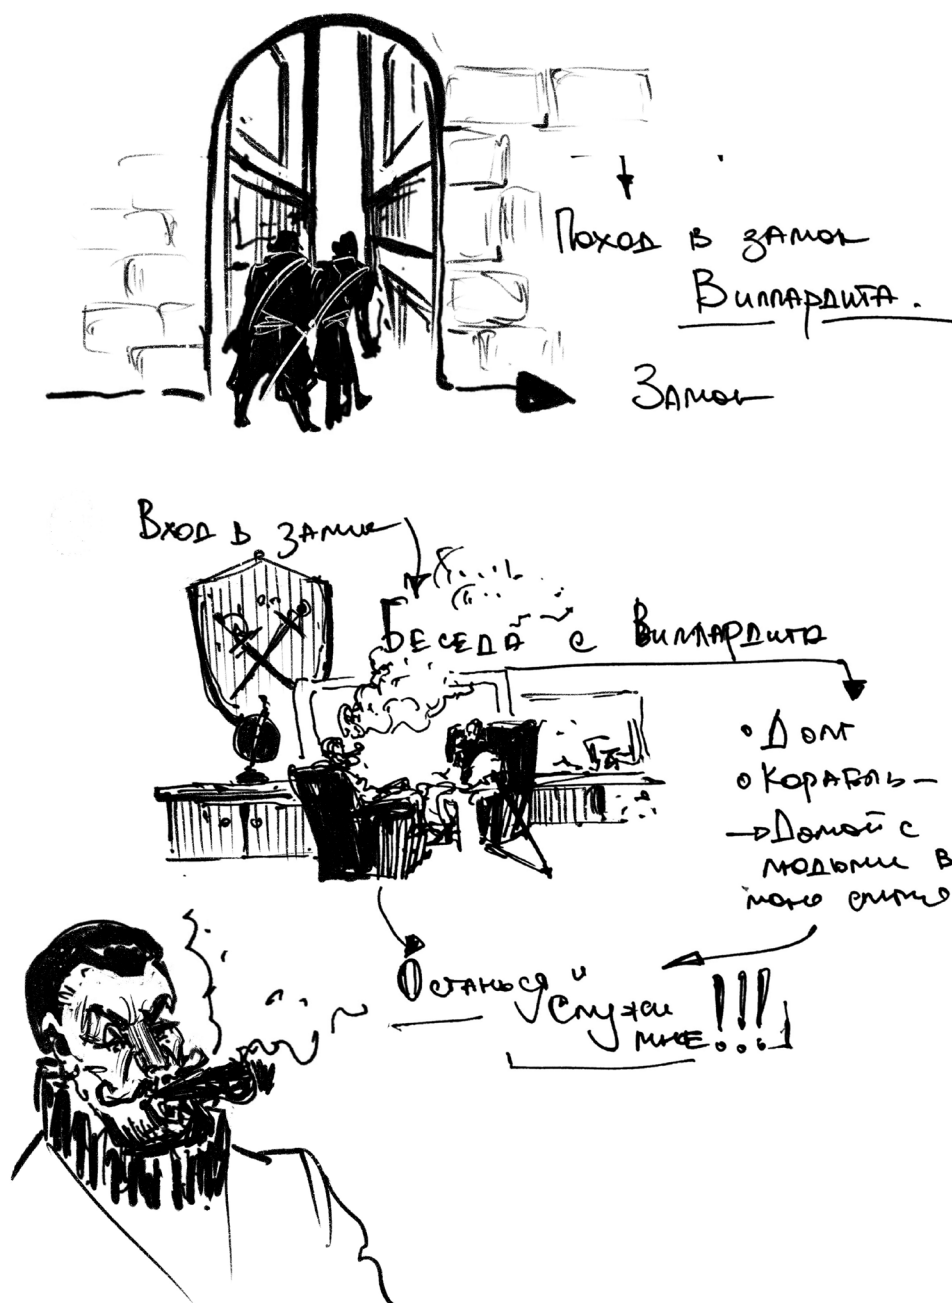 Поход в замок
Виллардита.
Замок
Вход в замок
Беседа с Виллардита
• Долг
• Корабль —
→ Домой с
людьми в
Останься и
Служи
мне!!!